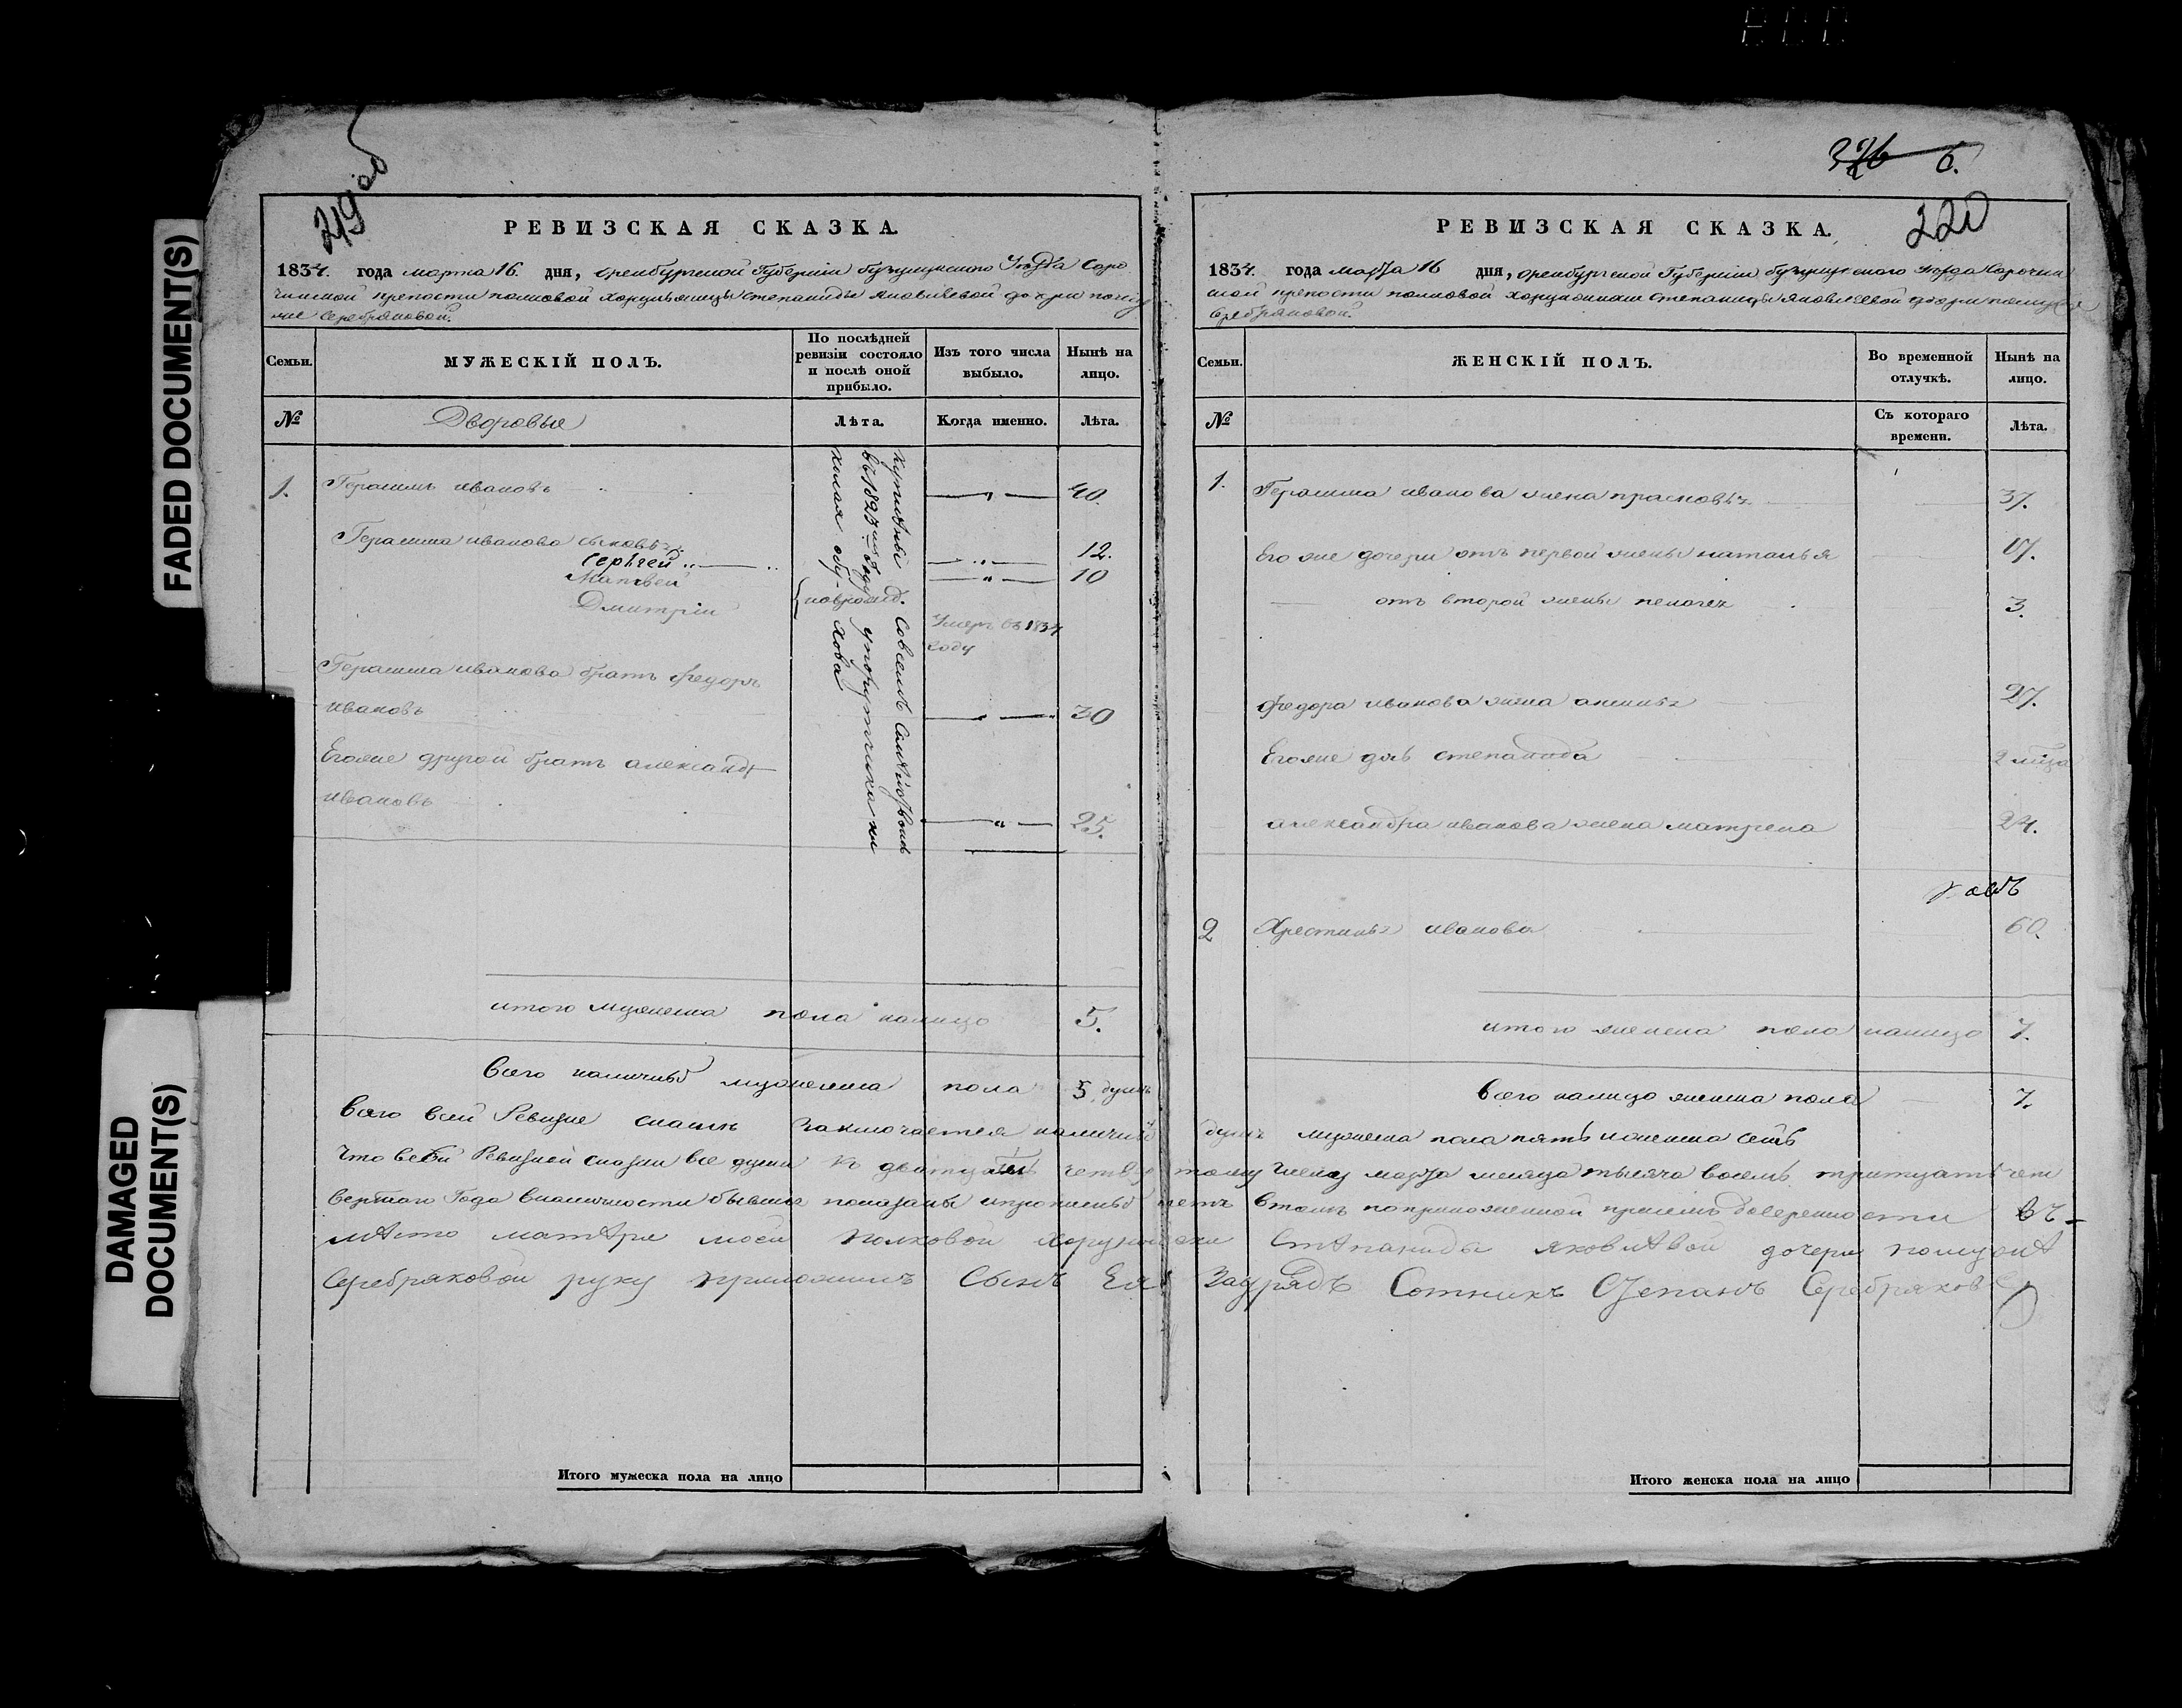 FADED DOCUMENT(S)
DAMAGED
DOCUMENT(S)
219 об
РЕВИЗСКАЯ СКАЗКА.
1834. года марта 16. дня, оренбургской Губернии бузулукского Уезда Соро
чинской крепости полковой хорунжицы степаниды Яковлевой дочери
Серебряковой.
Семьи.
МУЖЕСКІЙ ПОЛЪ.
По послѣдней
ревизіи состояло
и послѣ оной
прибыло.
Изъ того числа
выбыло.
Нынѣ на
лицо.
№
Дворовые
Лѣта.
Когда именно.
Лѣта.
1.
Герасимъ ивановъ
40.
Герасима иванова сыновья
Сергѣй
12.
Матвей
10
Дмитрии
новорожд.
Умеръ въ 1834
году
Герасима иванова братъ федоръ
ивановъ
30
Егоже другой братъ александръ
ивановъ
25.
итого мужеска пола налицо
5.
Всего наличныхъ мужеска пола 5. душъ
326 6.
220
РЕВИЗСКАЯ СКАЗКА.
1834. года марта 16 дня, оренбургской Губернии бузулукского уезда Сорочин
ской крепости полковой хорунжихи степаниды яковлевой дочери
Серебряковой.
Семьи.
ЖЕНСКІЙ ПОЛЪ.
Во временной
отлучкѣ.
Нынѣ на
лицо.
№
Съ котораго
времени.
Лѣта.
1.
Герасима иванова жена прасковья
37.
Его же дочери отъ первой жены наталья
17.
отъ второй жены пелагея
3.
федора иванова жена аксинья
27.
Егоже дочь степанида
2 мѣсяца
александра иванова жена матрена
24.
2
Хрестинья иванова
60.
итого женска пола налицо
7.
Всего налицо женска пола
7.
Всего всей Ревизие сказке заключается наличныхъ душъ мужеска пола пять иженска семь
Что всей Ревизкой сказки все души к дватцать четвертому числу марта месяца тысяча восемь тритцать чет
вертаго Года вналичности бывшие показаны ипрописныхъ нетъ втомъ поприложенной присемъ доверенности въ-
мѣсто матери моей полковой хорунжихи Степаниды яковлѣвой дочери
Серебряковой руку приложилъ Сынъ Ея Заурядъ Сотникъ Степанъ Серебряковъ
Итого мужеска пола на лицо
Итого женска пола на лицо